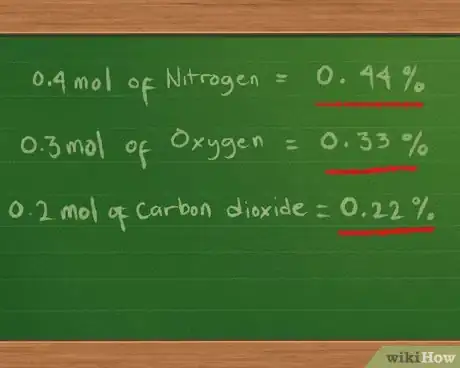 0.4 mol of Nitrogen = 0.44%
0.3 mol of Oxygen = 0.33%
0.2 mol of Carbon dioxide = 0.22%
wikiHow